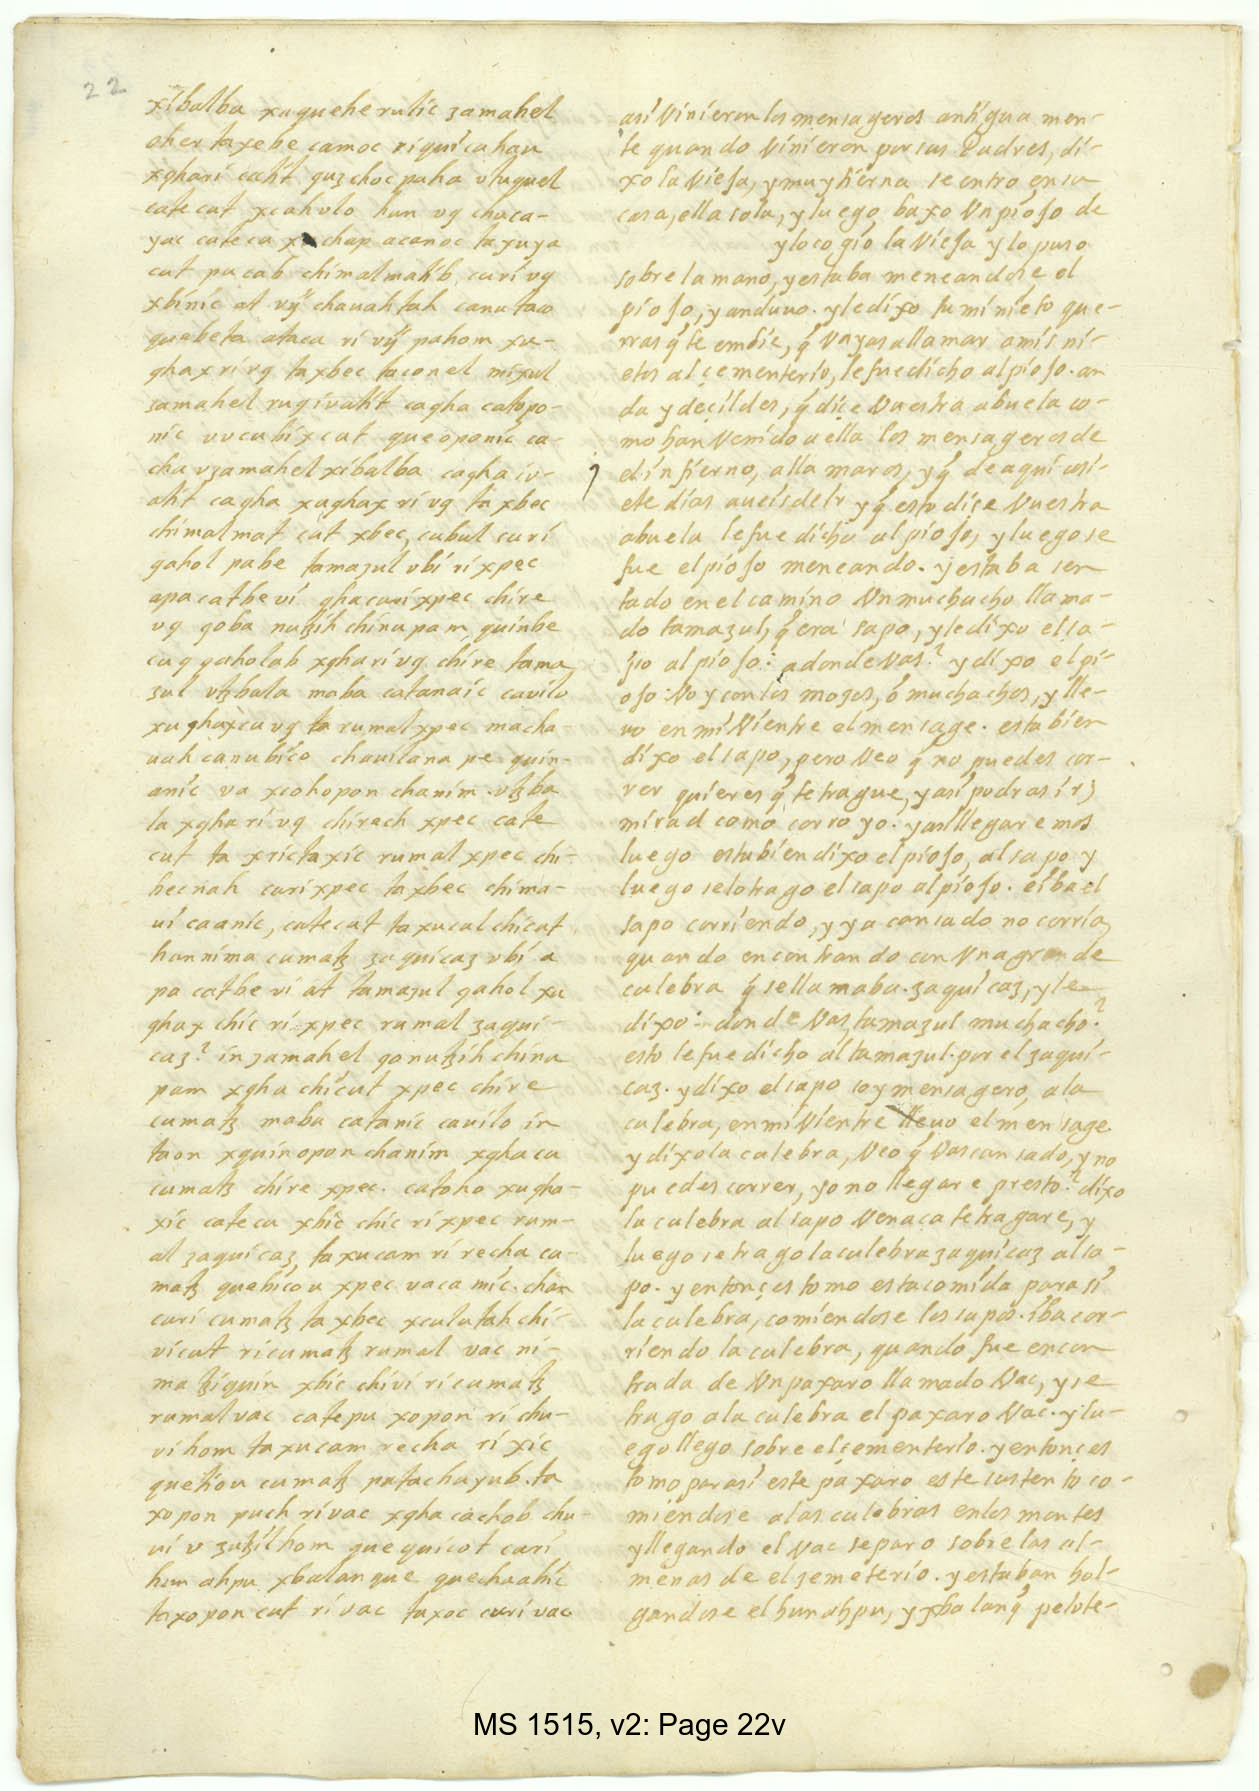 22
xibalba xaquehe rulic zamahel
oher ta xebe camoc ri quicahau
xqhari caht quzchoc paha vtuquel
catecat xcah vlo hun vq chaca-
yac cateca xchap acanoc ta xuya
cut pu cab chimalmatib, curi vq
xbinic at vÿ chauah tah canutao
quebeta ataca ri vÿ pahom xu-
qhax ri vq ta xbec taconel mixul
zamahel rug ivatit cagha catopo-
nic vvcubixcat que oponic ca-
cha vzamahel xibalba cagha iv-
atit cagha xuqhax ri vq ta xbec
chimalmat cut xbec, cubul curi
gahol pabe tamazul vbi ri xpec
apa catbe vi qhacuri xpec chire
vq qoba nutzih chinupam, quinbe
cuq qaholab xqhari vq chire tama
zul vtzbala maba catanaic cauilo
xuqhaxcu vq ta rumal xpec macha-
uah canubico chauilana pe quin-
anic va xcohopon chanim. vtzba
la xqha ri vq chirech xpec cate
cut ta xrictaxic rumal xpec chi-
hecnah curi xpec ta xbec chima-
ui caanic, catecut ta xucul chicut
han nima cumatz zaquicaz vbi a
pa catbe vi at tamazul qahol xu
qhax chic ri xpec rumal zaqui-
caz? in zamahel qo nutzih chinu
pam xqha chicut xpec chire
cumatz maba catanic cauilo in
taon xquinopon chanim xqhacu
cumatz chire xpec. catoho xuqha-
xic cateca xbic chic ri xpec rum-
al zaquicaz, ta xucam ri recha cu-
matz quebicou xpec vacamic. chan
curi cumatz ta xbec xculutah chi-
vicut ri cumatz rumal vac ni-
ma tziquin xbic chivi ri cumatz
rumal vac catepu xopon ri chu-
vi hom ta xucam recha ri xic
quetiou cumatz patachuyub. ta
xopon puch ri vac xqha cachob chu-
ui v zutzil hom que quicot curi
hun ahpu xbalanque quechaahic
ta xopon cut ri vac taxoc curi vac
asi Vinieron los mensageros antigua men-
te quando Vinieron por sus Padres, di-
xo la Vieja, y muy tierna se entro en su
casa, ella sola, y luego baxo Vn piojo de
y lo cogió la Vieja y lo puso
sobre la mano, y estaba meneandose el
piojo, y anduuo. y le dixo tu mi nieto que-
rras q̃ te embie, q̃ Vayas allamar a mis ni-
etos al çementerio, le fue dicho al piojo. an
da y deçildes, q̃ diçe Vuestra abuela co-
mo han Venido a ella los mensageros de
el infierno, allamaros, y q̃ de aqui asi-
ete dias aueis de ir y q̃ esto diçe Vuestra
abuela le fue dicho al piojo, y luego se
fue el piojo meneando. y estaba sen
tado en el camino Vn muchacho llama-
do tamazul, q̃ era sapo, y le dixo el sa-
po al piojo: adonde Vas? y dixo el pi-
ojo: Voy con los mozos, ó muchachos, y lle-
uo en mi Vientre el mensage. esta bien
dixo el sapo, pero Veo q̃ no puedes cor-
rer quieres q̃ te trague, y asi podras ir;
mirad como corro yo. y asi llegaremos
luego esta bien dixo el piojo, al sapo y
luego se lo trago el sapo al piojo. e iba el
sapo corriendo, y ya cansado no corria,
quando encontrando con Vna grande
culebra q̃ se llamaba. zaquicaz, y le
dixo: donde Vas, tamazul muchacho?
esto le fue dicho al tamazul. por el zaqui-
caz. y dixo el sapo soy mensagero, a la
culebra, en mi Vientre lleuo el mensage
y dixo la culebra, Veo q̃ Vas cansado, y no
puedes correr, yo no llegare presto? dixo
la culebra al sapo Ven aca te tragare, y
luego se trago la culebra zaquicaz al sa-
po. y entonçes tomo esta comida para si
la culebra, comiendose los sapos. iba cor-
riendo la culebra, quando fue encon
trada de Vn paxaro llamado Vac, y se
trago a la culebra el paxaro Vac. y lu-
ego llego sobre el çementerio. y entonçes
tomo para si este paxaro este sustento co-
miendose a las culebras en los montes
y llegando el Vac se paro sobre las al-
menas de el sementerio. y estaban hol-
gandose el hunahpu, y xbalanq̃ pelote-
MS 1515, v2: Page 22v